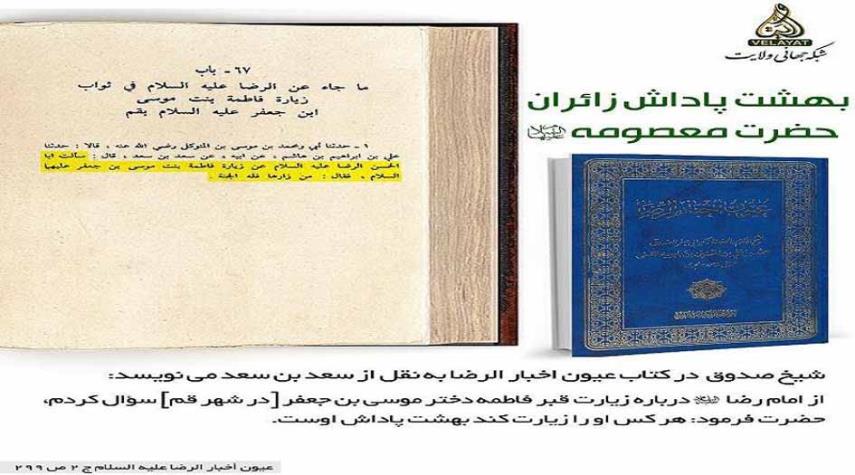 VELAYAT
شبکه جهانی ولایت
بهشت پاداش زائران
حضرت معصومه
٦٧ - باب
ما جاء عن الرضا عليه السلام في ثواب
زيارة فاطمة بنت موسى
ابن جعفر عليه السلام بقم
١ - حدثنا أبي ومحمد بن موسى بن المتوكل رضي الله عنه ، قالا : حدثنا
علي بن ابراهيم بن هاشم ، عن ابيه ، عن سعد بن سعد ، قال : سألت ابا
الحسن الرضا عليه السلام عن زيارة فاطمة بنت موسى بن جعفر عليهما
السلام ، فقال : من زارها فله الجنة .
شیخ صدوق در کتاب عیون اخبار الرضا به نقل از سعد بن سعد می نویسد:
از امام رضا درباره زیارت قبر فاطمه دختر موسی بن جعفر [در شهر قم] سؤال کردم،
حضرت فرمود: هر کس او را زیارت کند بهشت پاداش اوست.
عیون أخبار الرضا علیه السلام ج ٢ ص ٢٩٩